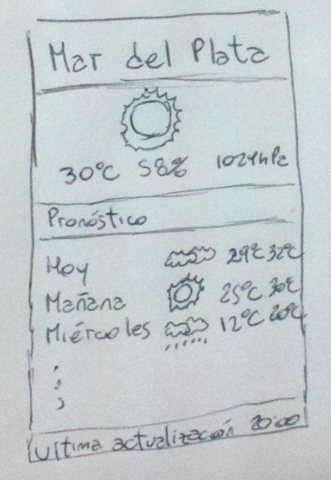 Mar del Plata
30°C 58% 1024hPa
Pronóstico
Hoy 29°C 32°C
Mañana 25°C 30°C
Miércoles 12°C 20°C
Ultima actualización 20:00